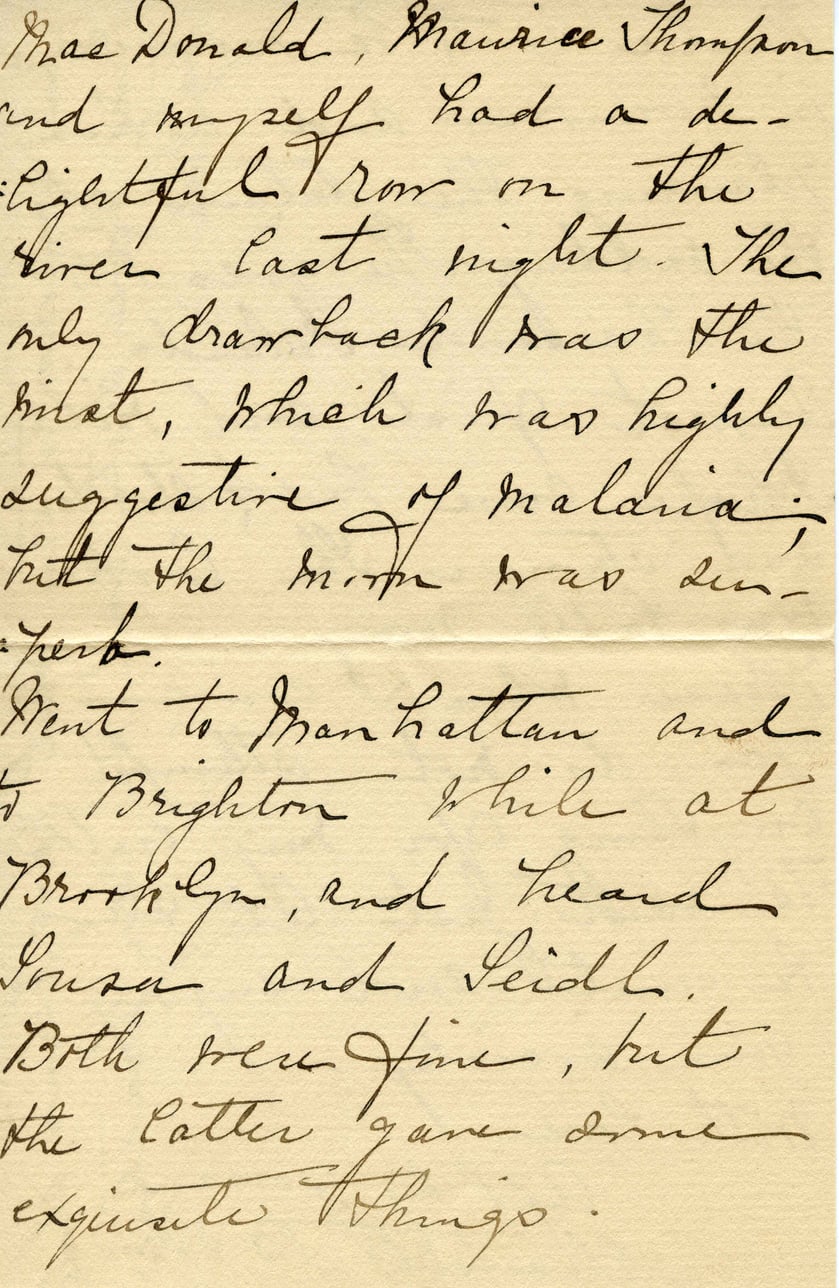 MacDonald, Maurice Thompson
and myself had a de-
:lightful row on the
river last night. The
only drawback was the
mist, which was highly
suggestive of malaria;
but the moon was su-
:perb.
Went to Manhattan and
to Brighton while at
Brooklyn, and heard
Sousa and Seidl.
Both were fine, but
the latter gave some
exquisite things.